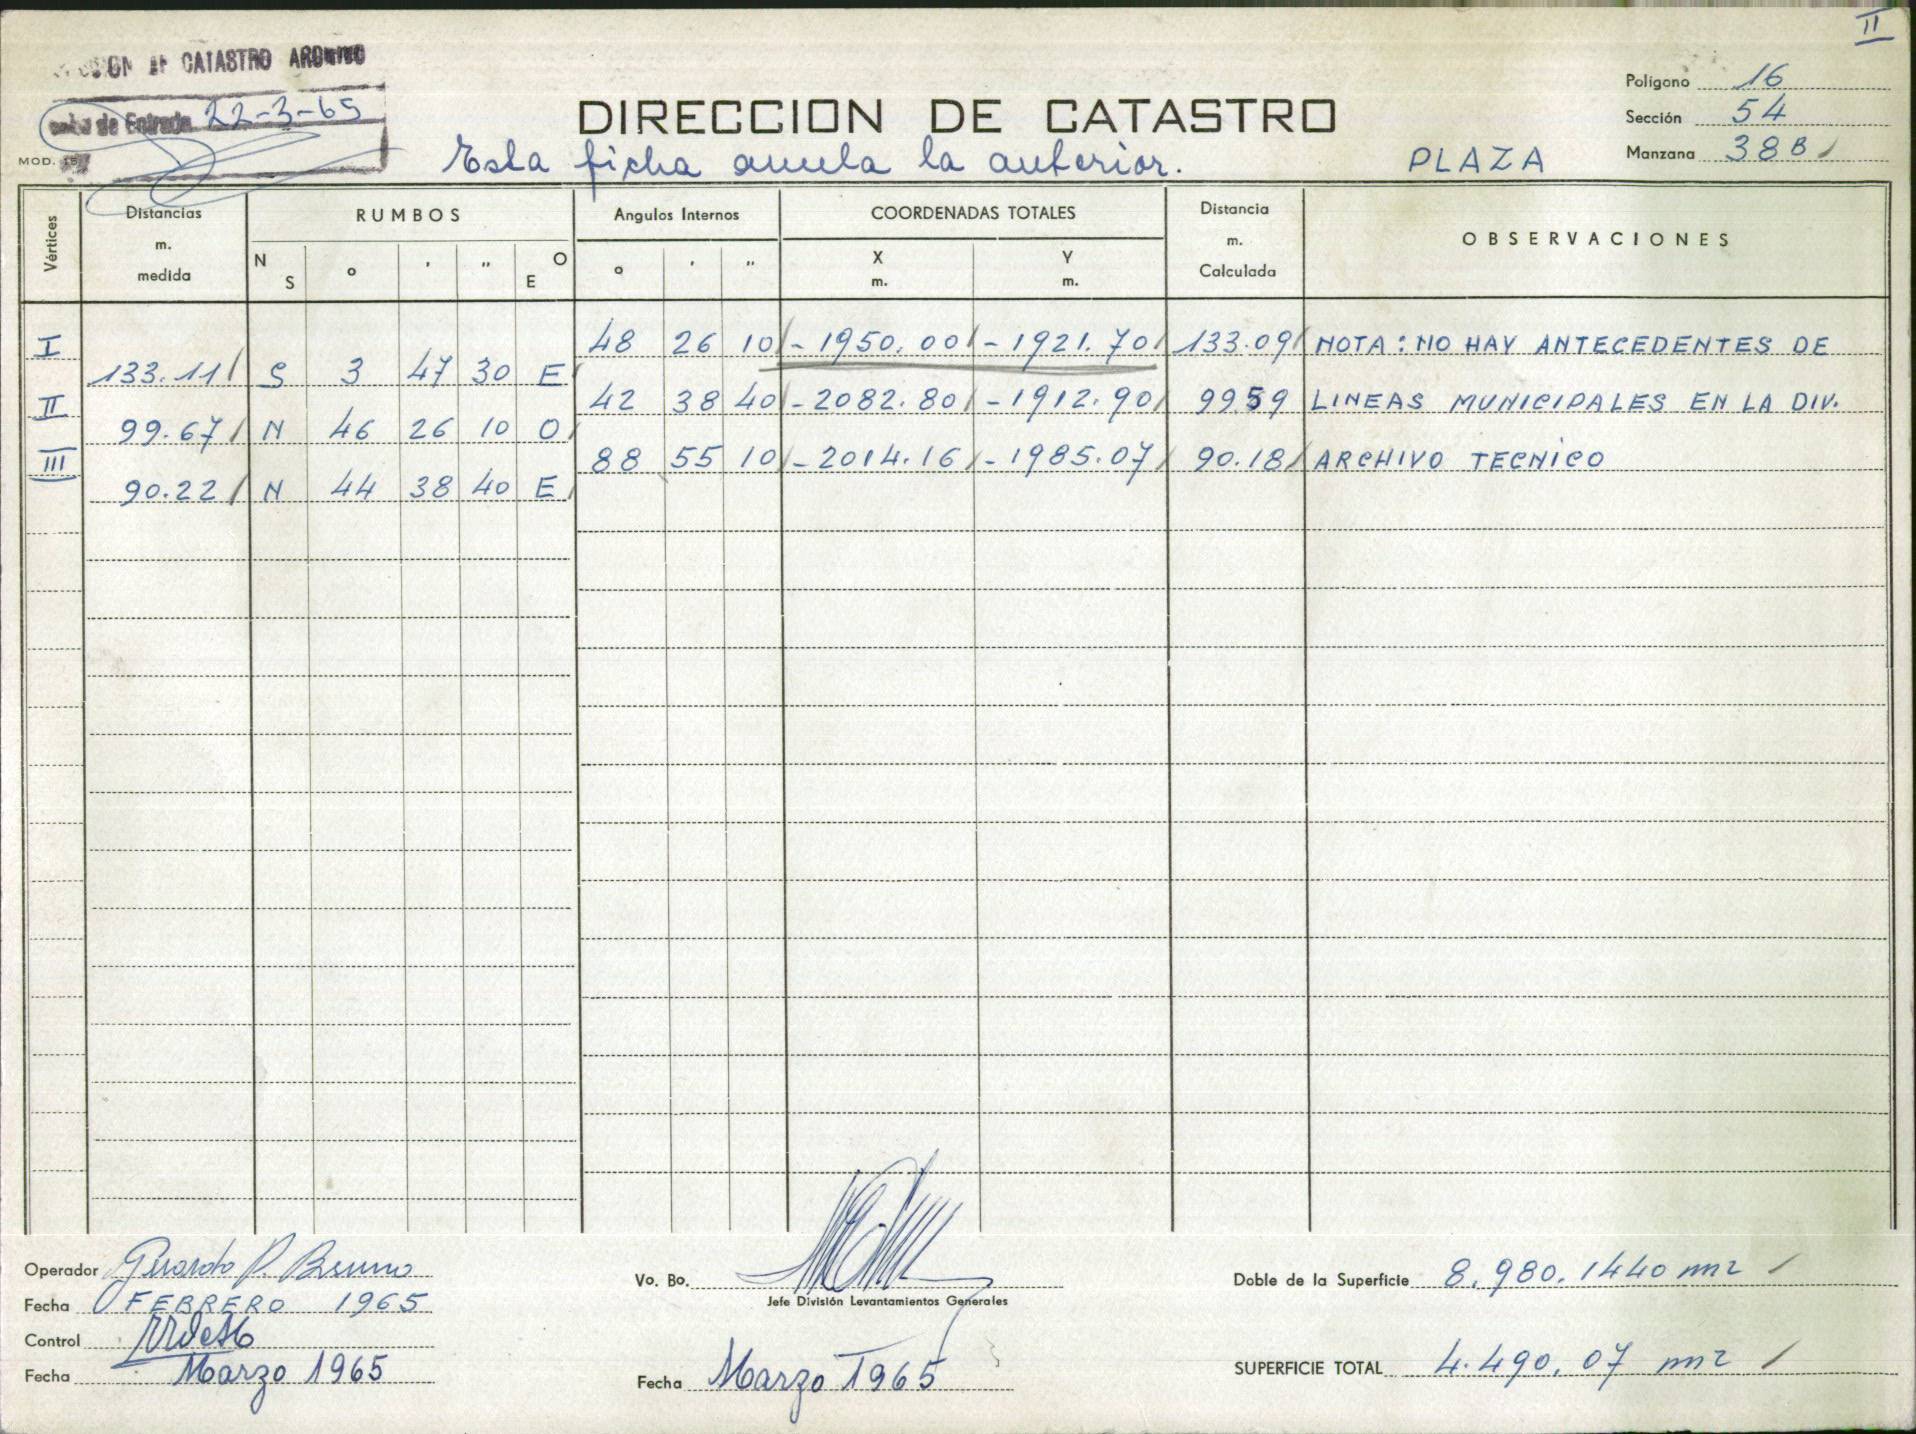 II
CATASTRO ARCHIVO
de Entrada 22-3-65
MOD.
DIRECCION DE CATASTRO
Esta ficha anula la anterior.
PLAZA
Polígono 16
Sección 54
Manzana 38B
Vértices Distancias m. medida RUMBOS Angulos Internos COORDENADAS TOTALES Distancia m. Calculada OBSERVACIONES
N S ° ' " O E ° ' " X m. Y m.
I 48 26 10 -1950.00 -1921.70 133.09 NOTA: NO HAY ANTECEDENTES DE
133.11 S 3 47 30 E
II 42 38 40 -2082.80 -1912.90 99.59 LINEAS MUNICIPALES EN LA DIV.
99.67 N 46 26 10 O
III 88 55 10 -2014.16 -1985.07 90.18 ARCHIVO TECNICO
90.22 N 44 38 40 E
Operador Gerardo P. Bruno
Fecha FEBRERO 1965
Control
Fecha Marzo 1965
Vo. Bo.
Jefe División Levantamientos Generales
Fecha Marzo 1965
Doble de la Superficie 8.980,1440 m2
SUPERFICIE TOTAL 4.490,07 m2